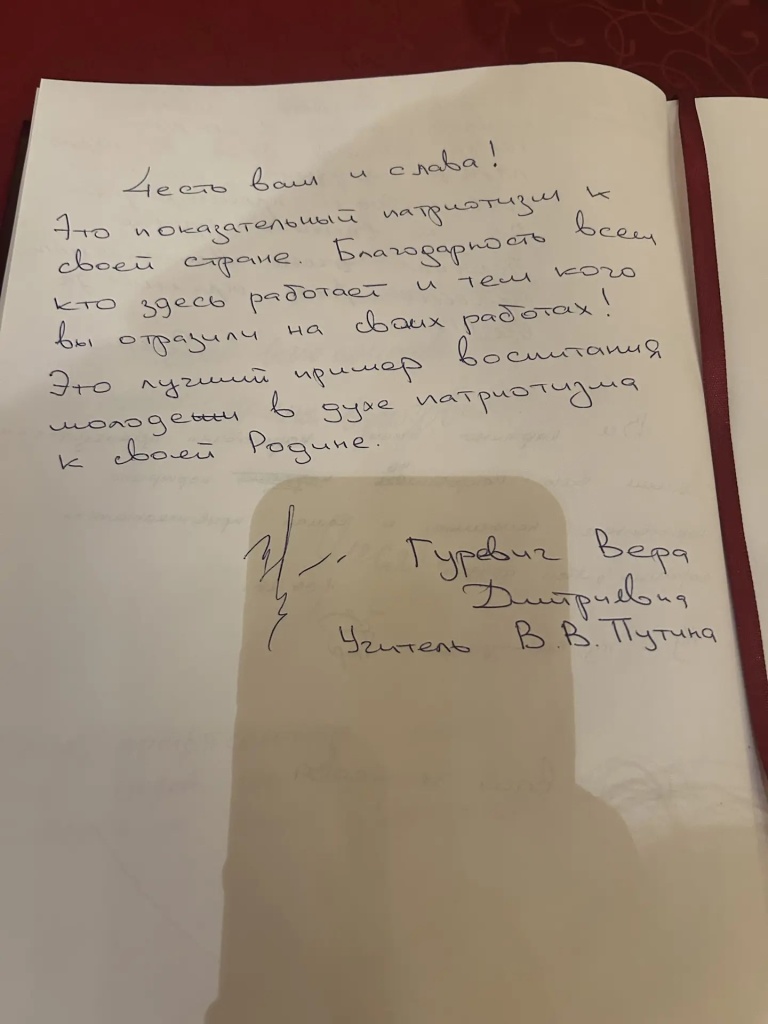 Честь вам и слава!
Это показательный патриотизм к
своей стране. Благодарность всем
кто здесь работает и тем кого
вы отразили на своих работах!
Это лучший пример воспитания
молодежи в духе патриотизма
к своей Родине.
Гуревич Вера
Дмитриевна
Учитель В.В. Путина